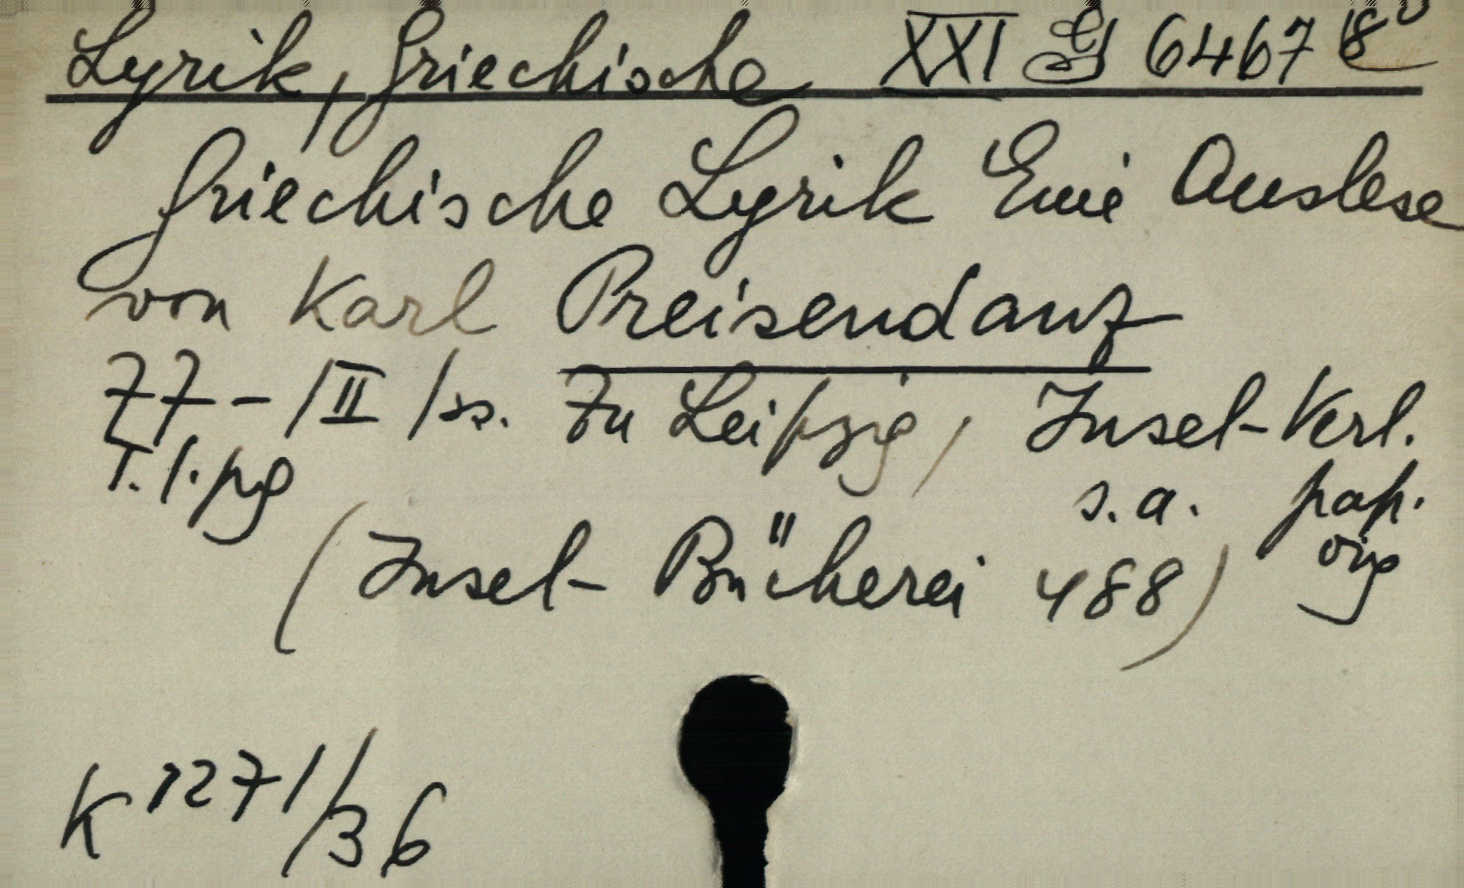 Lyrik, Griechische XXI G 6467 8°
Griechische Lyrik Eine Auslese
von Karl Preisendanz
77-/II/ss. Zu Leipzig, Insel-Verl.
T.1.pg s.a. pap.
orig
(Insel-Bücherei 488)
K 1271/36